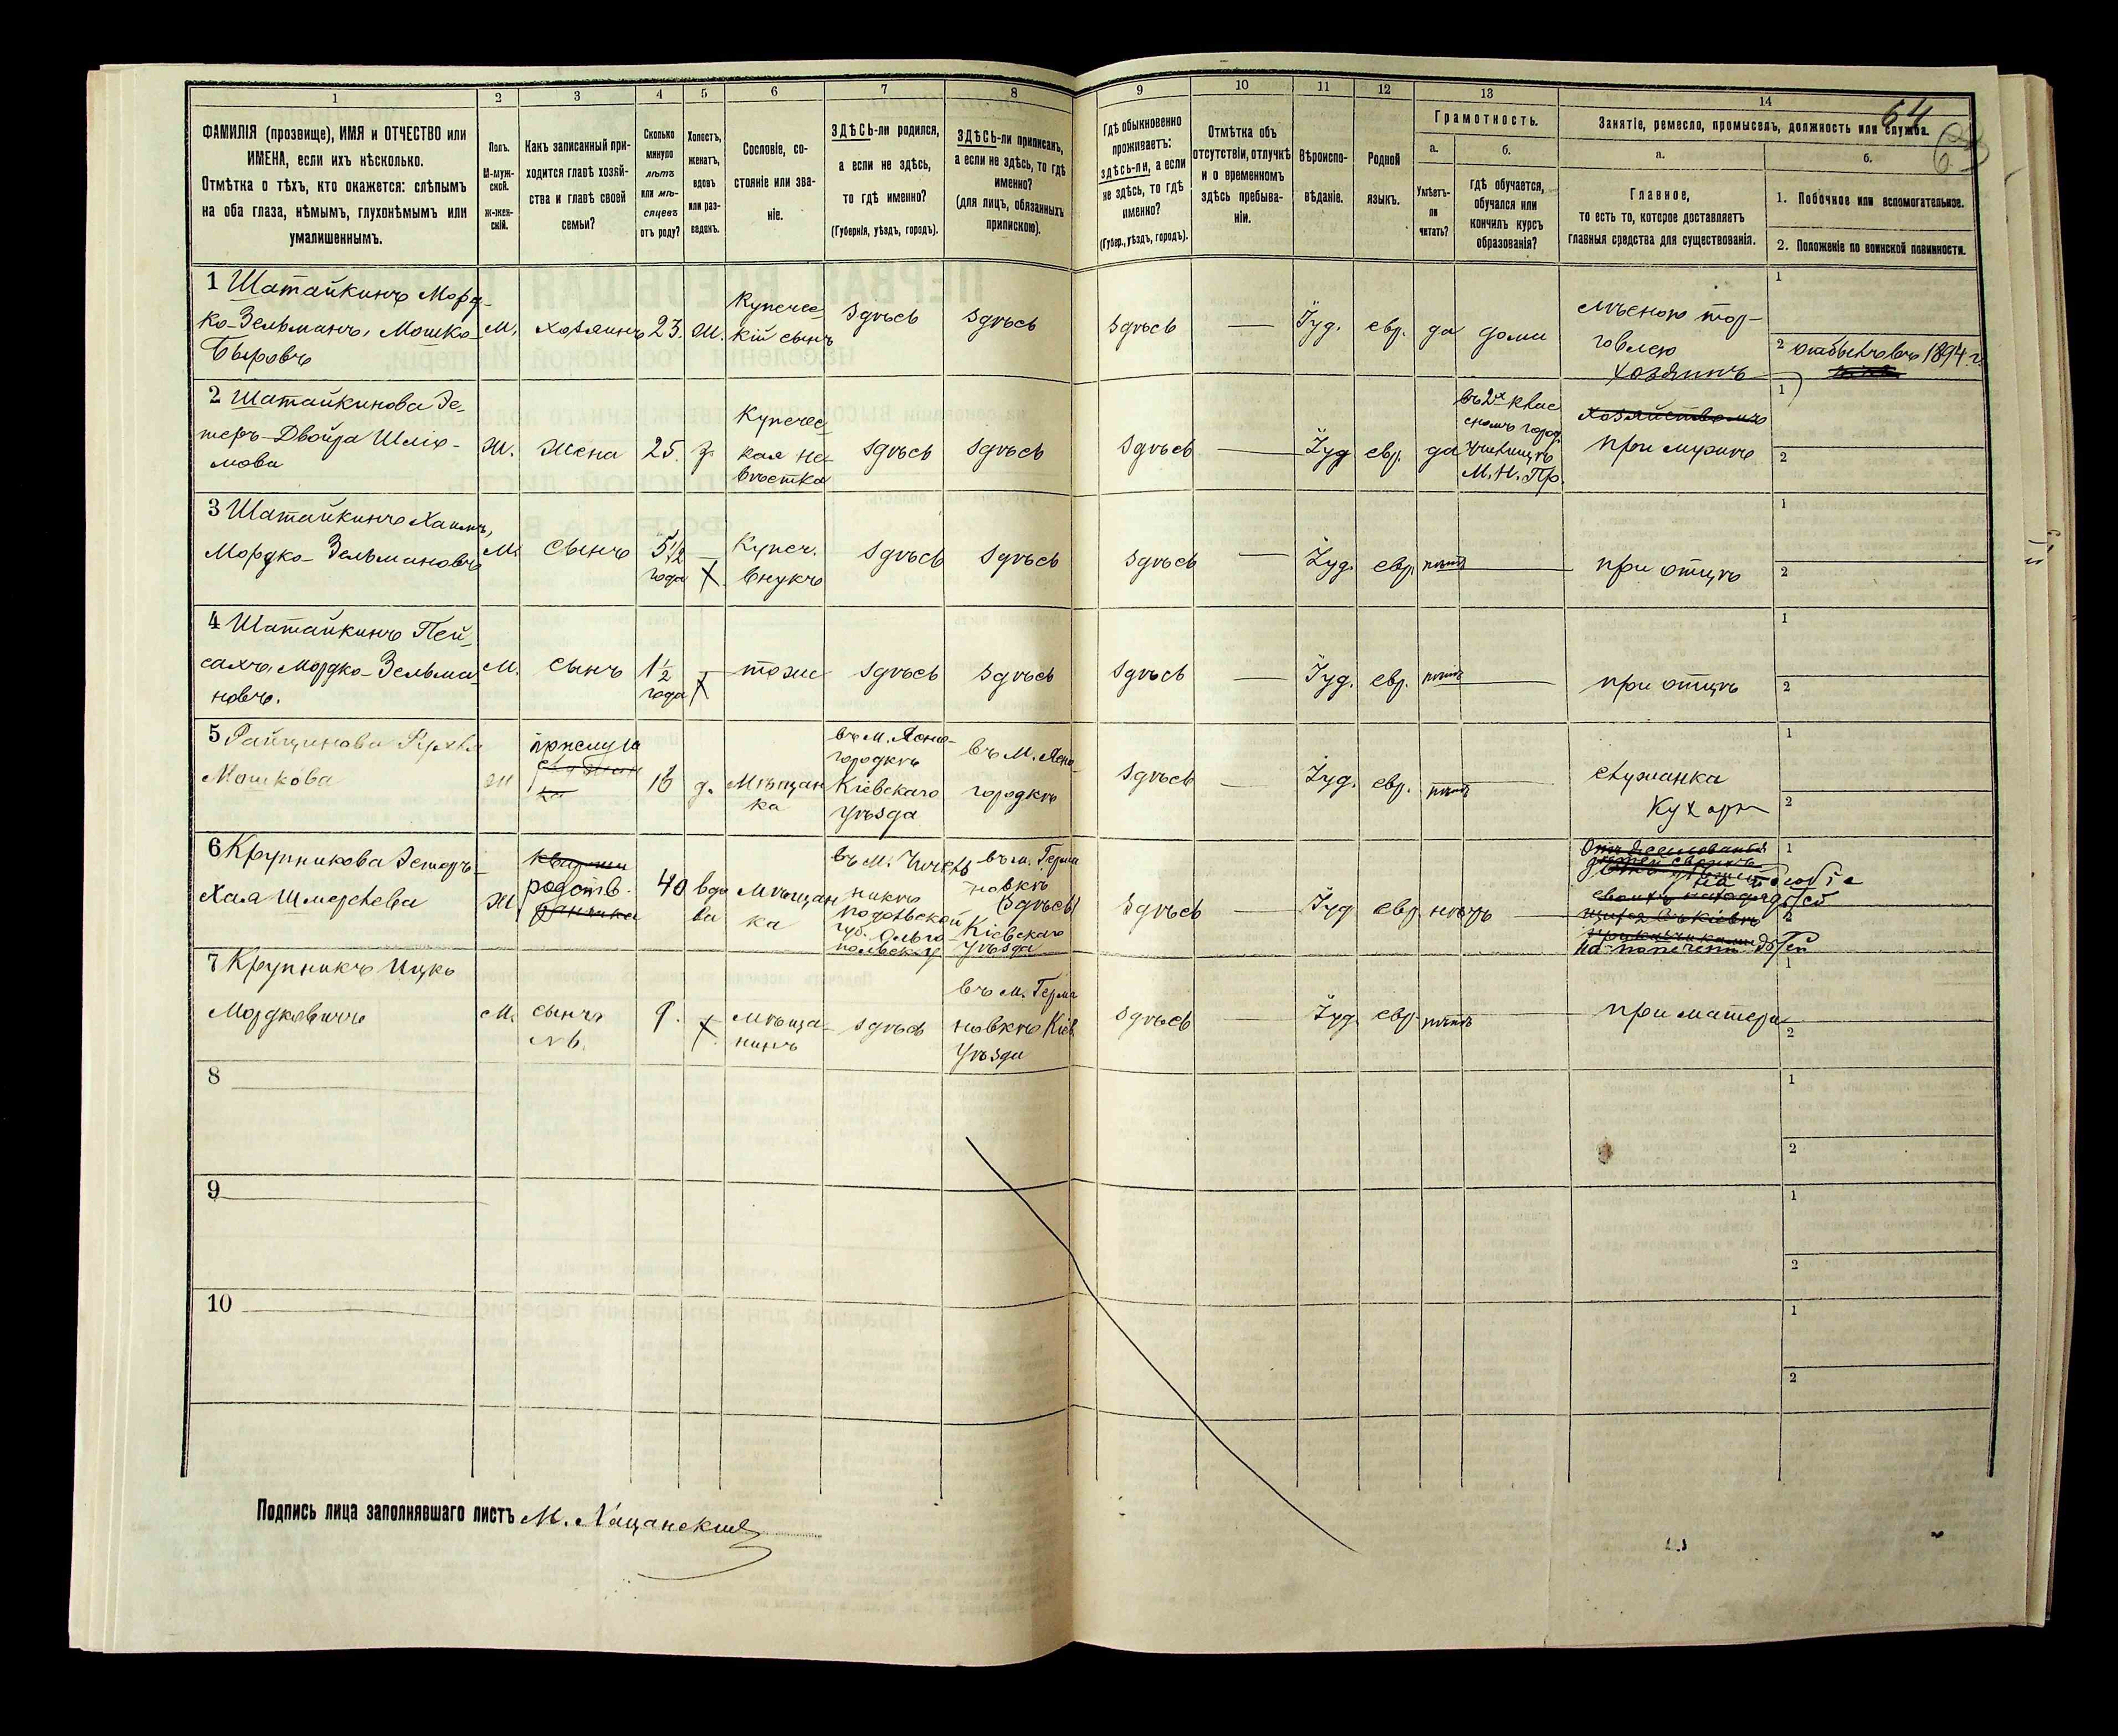 1 2 3 4 5 6 7 8 9 10 11 12 13 14
64
ФАМИЛІЯ (прозвище), ИМЯ и ОТЧЕСТВО или
ИМЕНА, если ихъ нѣсколько.
Отмѣтка о тѣхъ, кто окажется: слѣпымъ
на оба глаза, нѣмымъ, глухонѣмымъ или
умалишеннымъ.
Полъ.
М-муж-
ской.
ж-жен-
скій.
Какъ записанный при-
ходится главѣ хозяй-
ства и главѣ своей
семьи?
Сколько
минуло
лѣтъ
или мѣ-
сяцевъ
отъ роду?
Холостъ,
женатъ,
вдовъ
или раз-
веденъ.
Сословіе, со-
стояніе или зва-
ніе.
ЗДѢСЬ-ли родился,
а если не здѣсь,
то гдѣ именно?
(Губернія, уѣздъ, городъ).
ЗДѢСЬ-ли приписанъ,
а если не здѣсь, то гдѣ
именно?
(для лицъ, обязанныхъ
припискою).
Гдѣ обыкновенно
проживаетъ:
здѣсь-ли, а если
не здѣсь, то гдѣ
именно?
(Губер., уѣздъ, городъ).
Отмѣтка объ
отсутствіи, отлучкѣ
и о временномъ
здѣсь пребыва-
ніи.
Вѣроиспо-
вѣданіе.
Родной
языкъ.
Грамотность.
а.
Умѣетъ-
ли
читать?
б.
Гдѣ обучается,
обучался или
кончилъ курсъ
образованія?
Занятіе, ремесло, промыселъ, должность или служба.
а.
Главное,
то есть то, которое доставляетъ
главныя средства для существованія.
б.
1. Побочное или вспомогательное.
2. Положеніе по воинской повинности.
1 Шатайкинъ Морд-
ко-Зельманъ, Мошко-
Быровъ
М.
хозяинъ
23.
ж.
Купечес-
кій сынъ
здѣсь
здѣсь
здѣсь
—
Іуд.
евр.
да
дома
лѣсною тор-
говлею
хозяинъ
1
2 отбылъ въ 1894 г.
2 Шатайкинова Эс-
теръ-Двойра Шлio-
мова
ж.
жена
25.
з.
Купечес-
кая не-
вѣстка
здѣсь
здѣсь
здѣсь
—
Іуд
евр.
да
въ 2х клас
сномъ город.
училищѣ
М. Н. Пр.
хозяйствомъ
при мужѣ
1
2
3 Шатайкинъ Хаимъ,
Мордко-Зельмановъ
М.
сынъ
5½
года
—
х.
Купеч.
внукъ
здѣсь
здѣсь
здѣсь
—
Іуд.
евр.
нѣтъ
при отцѣ
1
2
4 Шатайкинъ Пей-
сахъ, Мордко-Зельма-
новъ.
М.
сынъ
1½
года
—
х
тоже
здѣсь
здѣсь
здѣсь
—
Іуд.
евр.
нѣтъ
при отцѣ
1
2
5
Мошкова
прислуга
16
д.
Мѣщан
ка
въ м. Ясно-
городкѣ
Кіевскаго
уѣзда
въ м. Ясно-
городкѣ
здѣсь
—
Іуд.
евр.
нѣтъ
служанка
Кухарк
1
2
6 Крупникова Эстеръ-
Хая Шмерлева
ж
родств.
40
вдо
ва
Мѣщан
ка
въ м. Чичель
никѣ
Подольской
губ. Ольго-
польск. у
въ м. Герма
новкѣ
(здѣсь)
Кіевскаго
уѣзда
здѣсь
—
Іуд
евр
нѣтъ
1
2
7 Крупникъ Ицко
Мордковичъ
М.
сынъ
№ 6.
9.
х
Мѣща-
нинъ
здѣсь
въ м. Герма
новкѣ Кіев
уѣзда
здѣсь
—
Іуд.
евр.
нѣтъ
при матери
1
2
8
1
2
9
1
2
10
1
2
Подпись лица заполнявшаго листъ М. Хацанскій